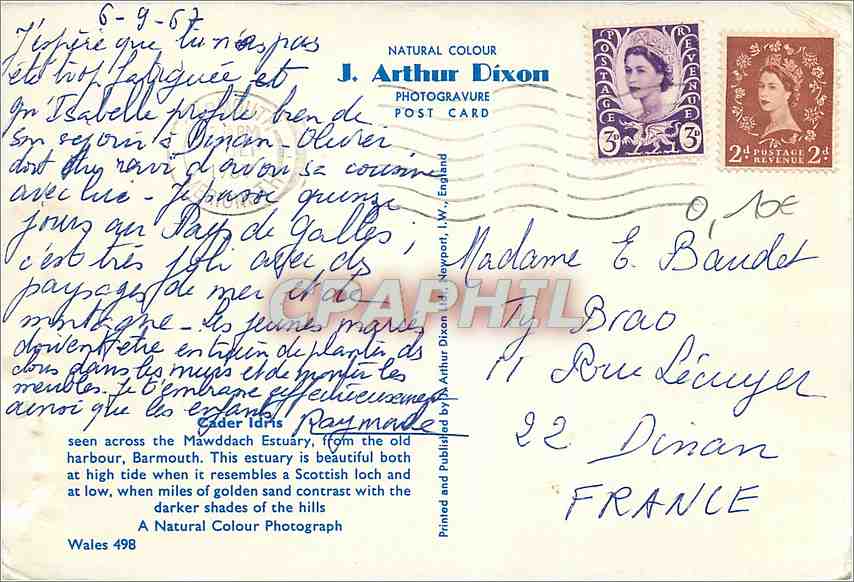 6-9-67
J'espère que tu n'es pas
été trop fatiguée et
qu'Isabelle profite bien de
son séjour à Dinan - Olivier
doit être ravi d'avoir sa cousine
avec lui - Je passe quinze
jours au Pays de Galles ;
c'est très joli avec des
paysages de mer et de
montagne - Les jeunes mariés
doivent être en train de planter des
clous dans les murs et de monter les
meubles. Je t'embrasse affectueusement
ainsi que les enfants
Raymonde
Cader Idris
seen across the Mawddach Estuary, from the old
harbour, Barmouth. This estuary is beautiful both
at high tide when it resembles a Scottish loch and
at low, when miles of golden sand contrast with the
darker shades of the hills
A Natural Colour Photograph
Wales 498
NATURAL COLOUR
J. Arthur Dixon
PHOTOGRAVURE
POST CARD
Printed and Published by J. Arthur Dixon Ltd., Newport, I.W., England
POSTAGE
REVENUE
3D
3D
2d POSTAGE REVENUE 2d
0,10€
Madame E. Baudet
Ty Brao
11 Rue Lécuyer
22 Dinan
FRANCE
CPAPHIL